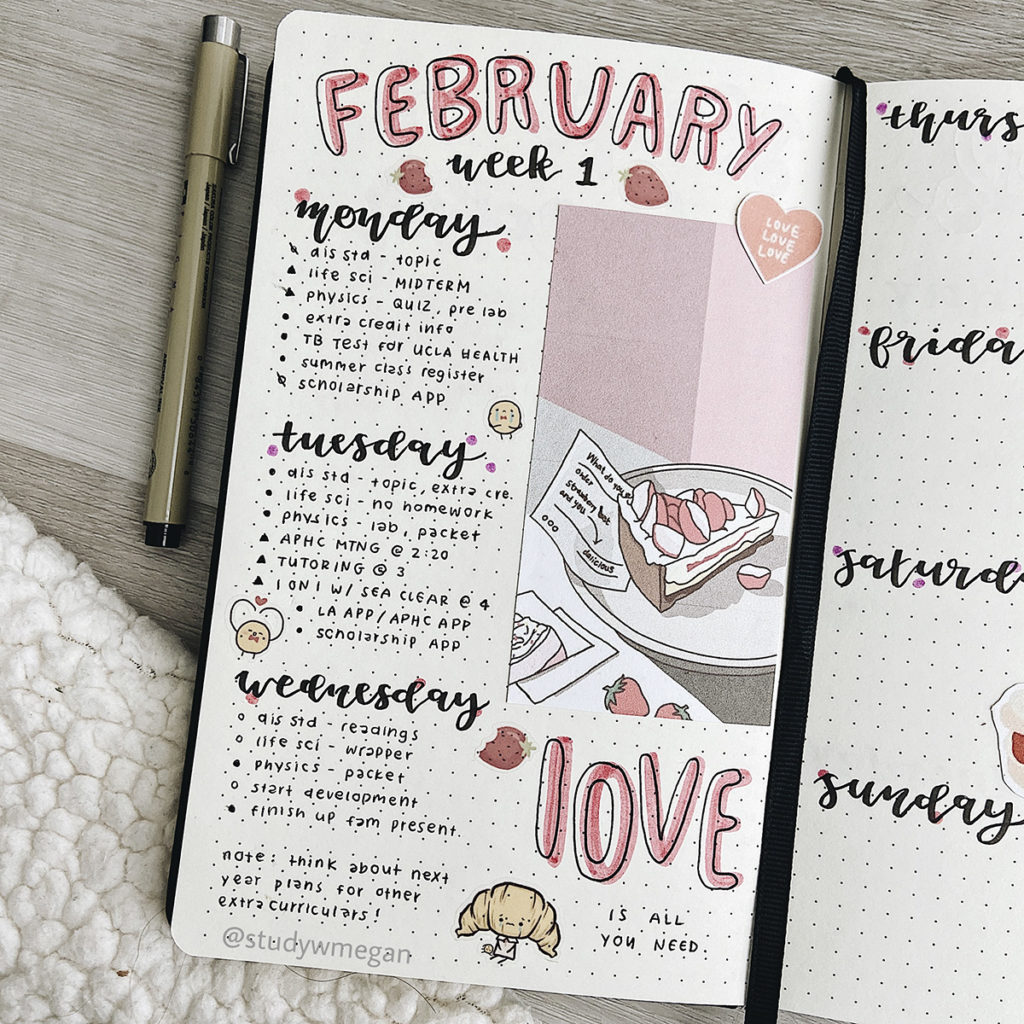 FEBRUARY
week 1
monday
dis std - topic
life sci - MIDTERM
physics - QUIZ, pre lab
extra credit info
TB TEST for UCLA HEALTH
summer class register
scholarship APP
tuesday
dis std - topic, extra cre.
life sci - no homework
physics - lab, packet
APHC MTNG @ 2:20
TUTORING @ 3
1 ON 1 W/ SEA CLEAR @ 4
LA APP/APHC APP
scholarship APP
wednesday
dis std - readings
life sci - wrapper
physics - packet
start development
finish up fam present.
note: think about next
year plans for other
extracurriculars!
@studywmegan
LOVE
LOVE
LOVE
What do you
order
strawberry
and you
delicious
lOVE
IS All
YOU NEED.
thurs
frida
saturd
sunday